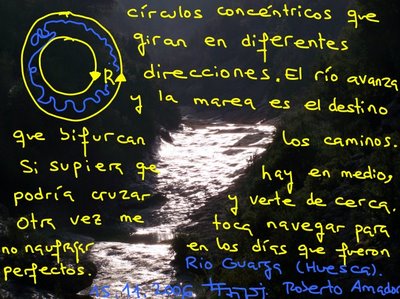 círculos concéntricos que
giran en diferentes
R direcciones. El río avanza
y la marea es el destino
que bifurcan los caminos.
Si supiera que hay en medio,
podría cruzar y verte de cerca.
Otra vez me toca navegar para
no naufragar en los días que fueron
perfectos. Río Guarga (Huesca).
15.11.2006 Roberto Amador